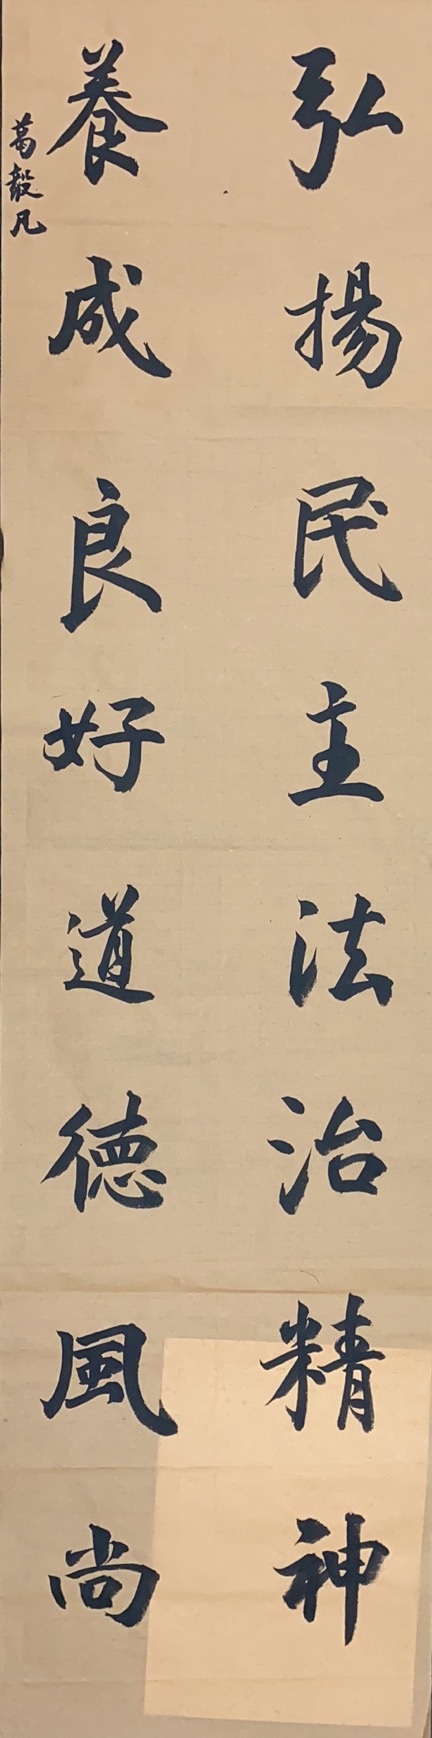 弘揚民主法治精神
養成良好道德風尚
葛毅凡